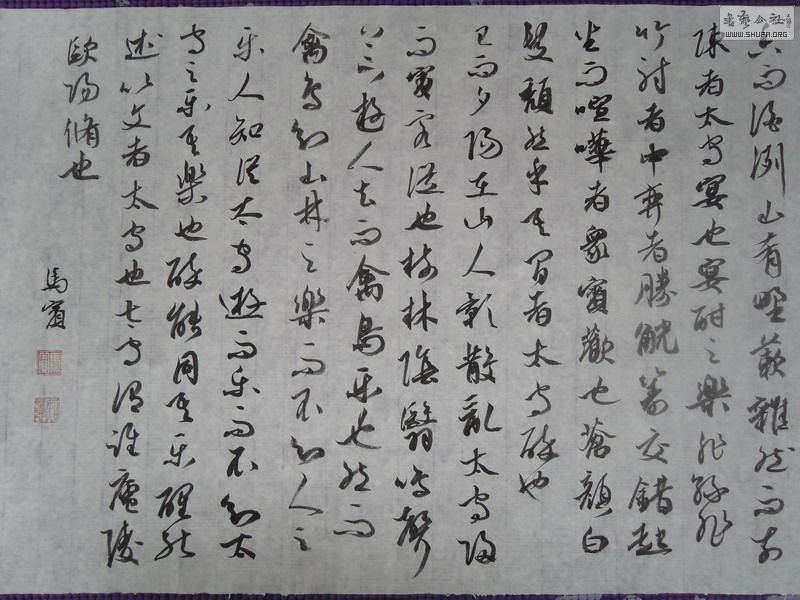 而酒洌山肴野蔌雜然而前
陳者太守宴也宴酣之樂非絲非
竹射者中弈者勝觥籌交錯起
坐而喧嘩者衆賓歡也蒼顏白
髮頹然乎其間者太守醉也
已而夕陽在山人影散亂太守歸
而賓客從也樹林陰翳鳴聲
上下遊人去而禽鳥樂也然而
禽鳥知山林之樂而不知人之
樂人知從太守遊而樂而不知太
守之樂其樂也醉能同其樂醒能
述以文者太守也太守謂誰廬陵
歐陽脩也
馬賓
書藝公社
WWW.SHUFA.ORG